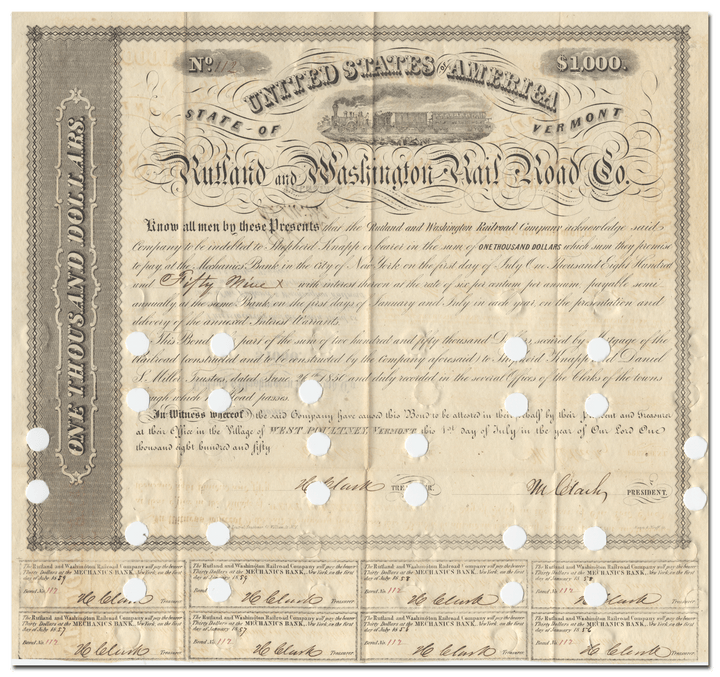 No. 112
$1,000.
UNITED STATES OF AMERICA
STATE OF VERMONT
Rutland and Washington Rail Road Co.
ONE THOUSAND DOLLARS
Know all men by these Presents that the Rutland and Washington Railroad Company acknowledge said
Company to be indebted to Shepherd Knapp or bearer in the sum of ONE THOUSAND DOLLARS which sum they promise
to pay, at the Mechanics Bank in the City of New York on the first day of July One Thousand Eight Hundred
and Fifty Nine with interest thereon at the rate of six per centum per annum payable semi
annually at the same Bank on the first days of January and July in each year, on the presentation and
delivery of the annexed Interest Warrants.
This Bond is part of the sum of two hundred and fifty thousand secured by Mortgage of the
Railroad constructed and to be constructed by the Company aforesaid to Shepherd Knapp and Daniel
N. Miller Trustees, dated June 1850 and duly recorded in the several Offices of the Clerks of the towns
through which Road passes.
In Witness whereof, the said Company have caused this Bond to be attested in their behalf by their President and Treasurer
at their Office in the Village of WEST POULTNEY, VERMONT this 1st day of July in the year of Our Lord One
thousand eight hundred and fifty
H Clark TREASR.
M Clark, PRESIDENT.
The Rutland and Washington Railroad Company will pay the bearer
Thirty Dollars at the MECHANICS BANK, New York, on the first
day of July 1859
Bond No. 112 H Clark Treasurer
The Rutland and Washington Railroad Company will pay the bearer
Thirty Dollars at the MECHANICS BANK, New York, on the first
day of January 1859
Bond No. 112 H Clark Treasurer
The Rutland and Washington Railroad Company will pay the bearer
Thirty Dollars at the MECHANICS BANK, New York, on the first
day of July 1858
Bond No. 112 H Clark Treasurer
The Rutland and Washington Railroad Company will pay the bearer
Thirty Dollars at the MECHANICS BANK, New York, on the first
day of January 1858
Bond No. 112 H Clark Treasurer
The Rutland and Washington Railroad Company will pay the bearer
Thirty Dollars at the MECHANICS BANK, New York, on the first
day of July 1857
Bond No. 112 H Clark Treasurer
The Rutland and Washington Railroad Company will pay the bearer
Thirty Dollars at the MECHANICS BANK, New York, on the first
day of January 1857
Bond No. 112 H Clark Treasurer
The Rutland and Washington Railroad Company will pay the bearer
Thirty Dollars at the MECHANICS BANK, New York, on the first
day of July 1856
Bond No. 112 H Clark Treasurer
The Rutland and Washington Railroad Company will pay the bearer
Thirty Dollars at the MECHANICS BANK, New York, on the first
day of January 1856
Bond No. 112 H Clark Treasurer